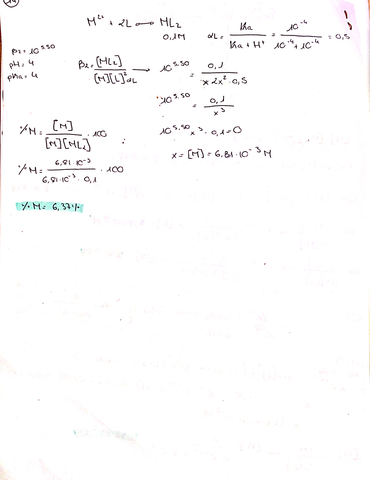 14
M²⁺ + 2L ⟶ ML₂
0,1M
αL = Ka / Ka + H⁺ = 10⁻⁴ / 10⁻⁴ + 10⁻⁴ = 0,5
β₂ = 10^5.50
pH = 4
pKa = 4
β₂ = [ML₂] / [M][L]² αL ⟶ 10^5.50 = 0,1 / x 2x² · 0,5
10^5.50 = 0,1 / x³
% M = [M] / [M][ML₂] · 100
10^5,50 x³ · 0,1 = 0
% M = 6,81·10⁻³ / 6,81·10⁻³ · 0,1 · 100
x = [M] = 6.81·10⁻³ M
% M = 6,37%